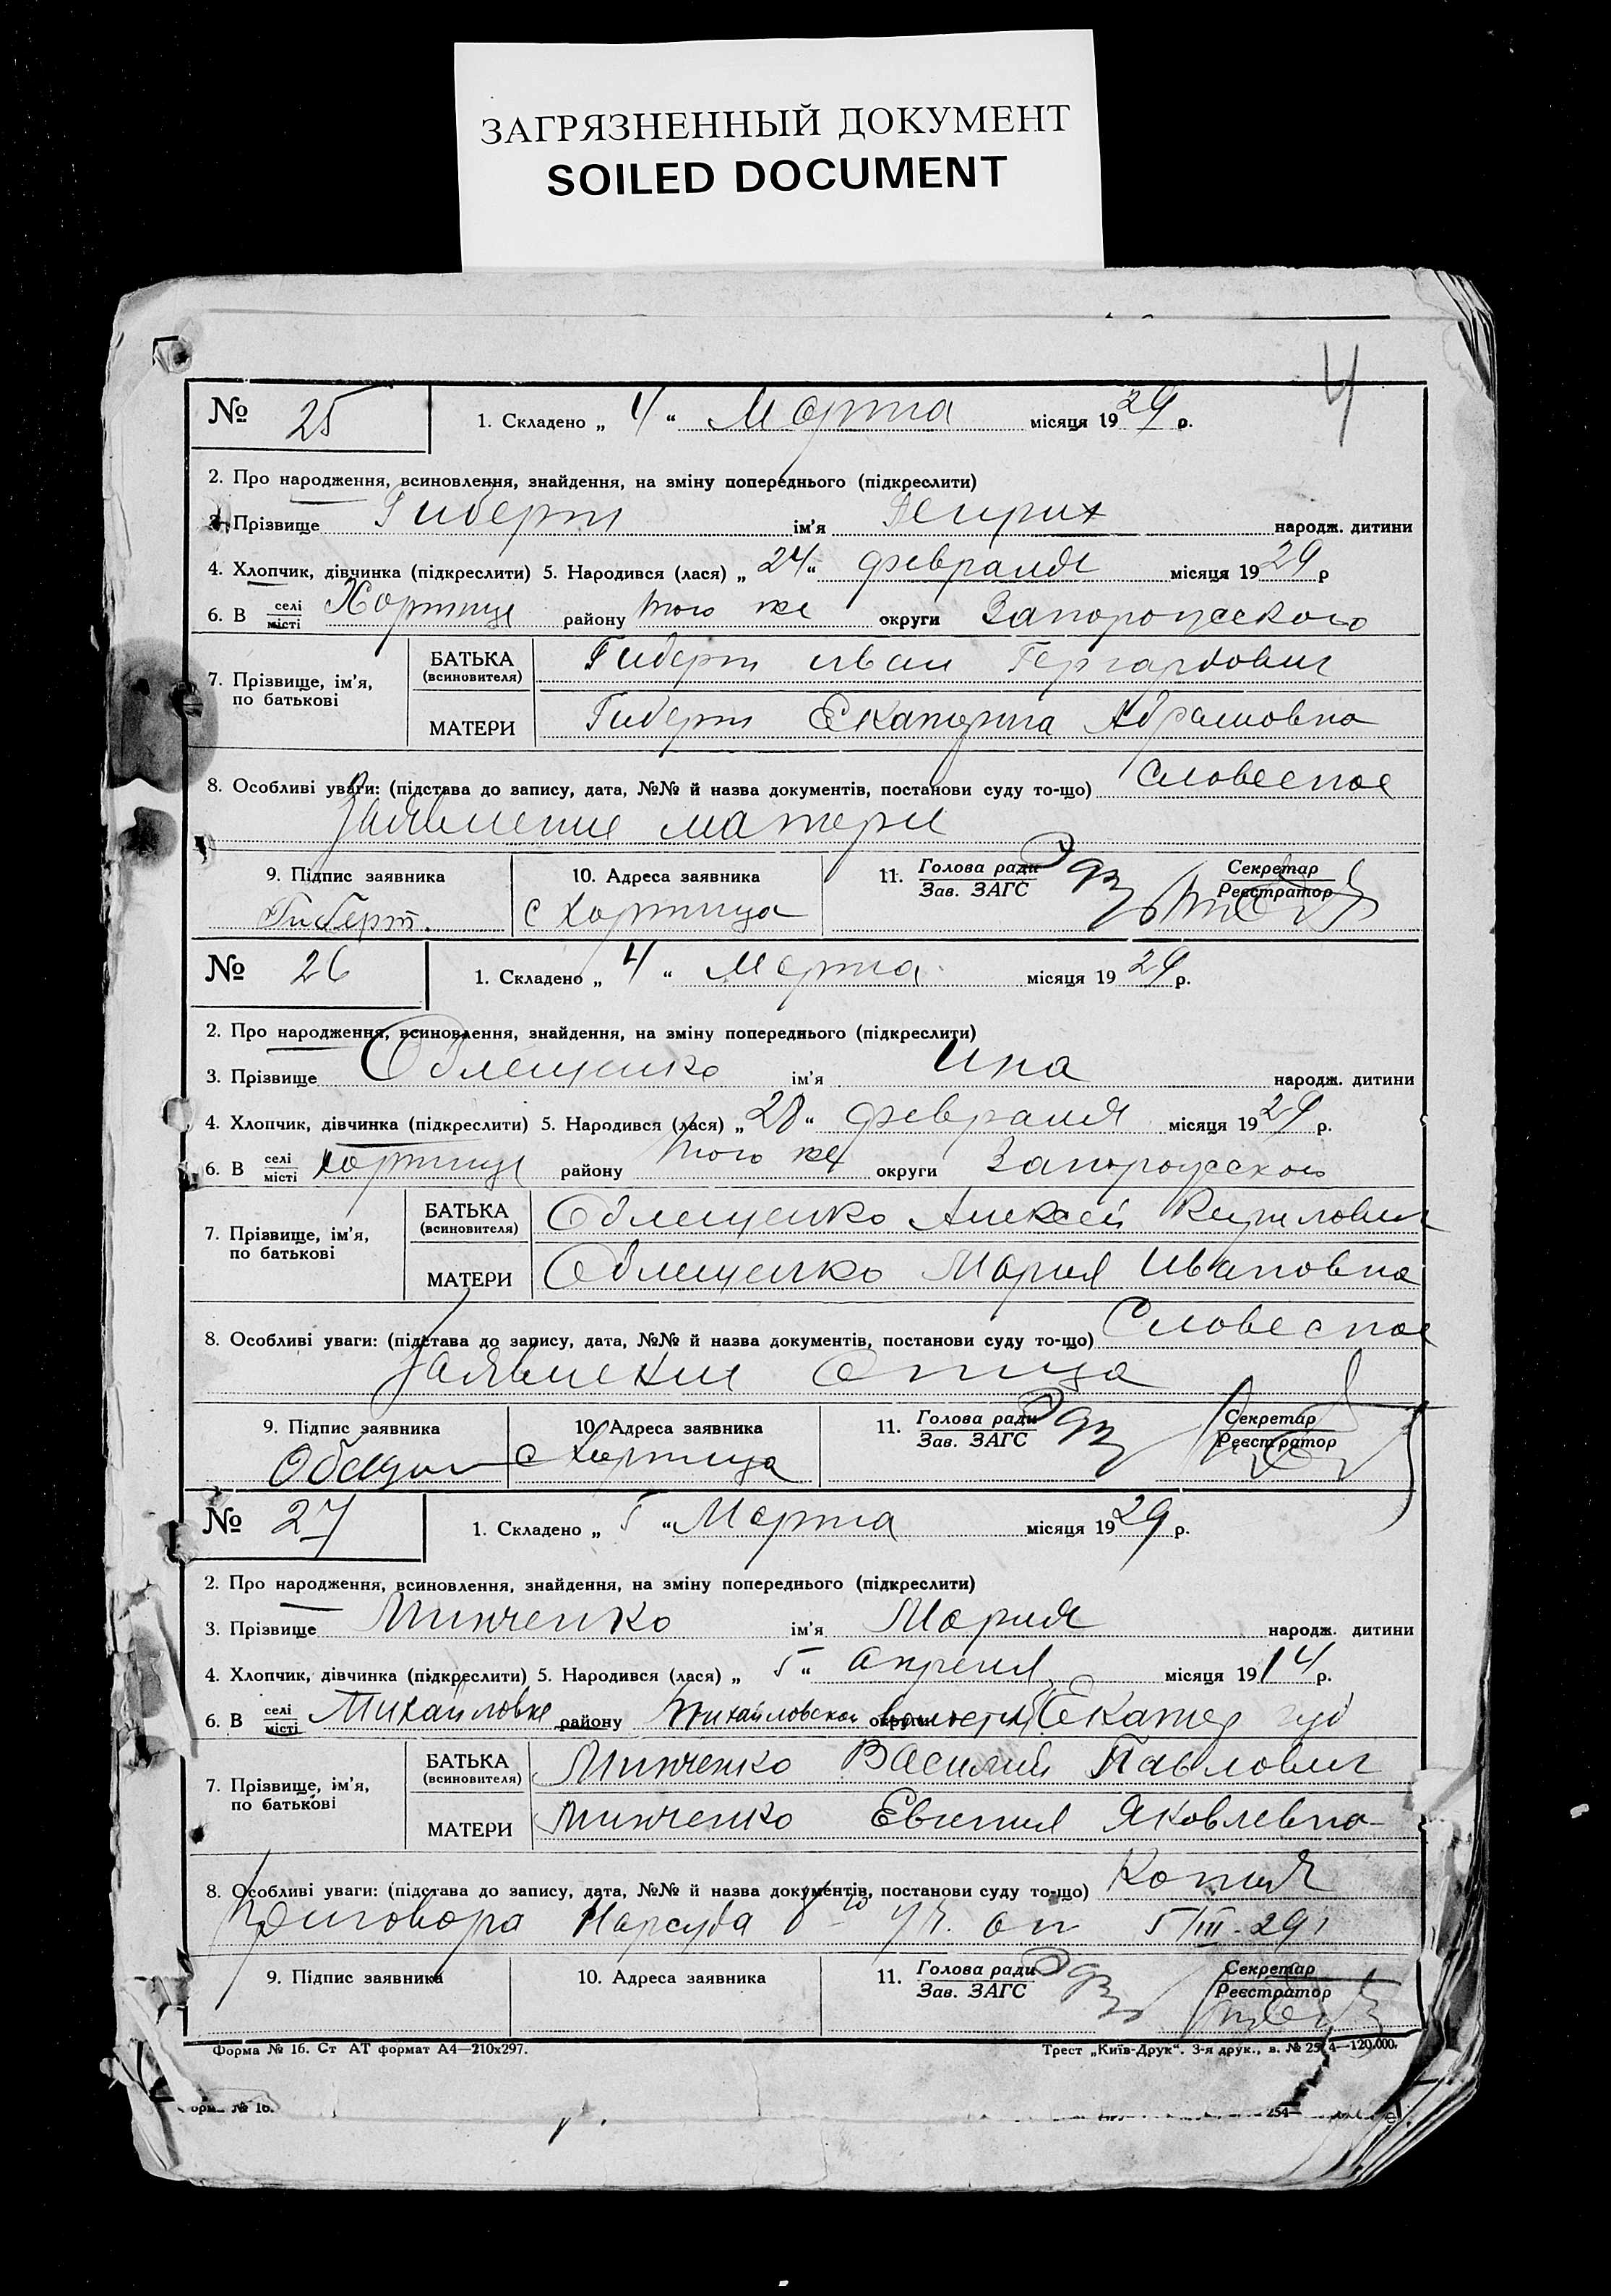 ЗАГРЯЗНЕННЫЙ ДОКУМЕНТ
SOILED DOCUMENT
4
№ 25 1. Складено „ 4 “ Марта місяця 1929 р.
2. Про народження, всиновлення, знайдення, на зміну попереднього (підкреслити)
3. Прізвище Гиберт ім'я Генрих народж. дитини
4. Хлопчик, дівчинка (підкреслити) 5. Народився (лася) „ 24 “ февраля місяця 1929 р
6. В селі Хортице району того же округи Запорожского
місті
7. Прізвище, ім'я, по батькові
БАТЬКА (всиновителя) Гиберт Иван Гергардович
МАТЕРИ Гиберт Екатерина Абрамовна
8. Особливі уваги: (підстава до запису, дата, №№ й назва документів, постанови суду то-що) Словесное
заявление матери
9. Підпис заявника 10. Адреса заявника 11. Голова ради Секретар
Зав. ЗАГС Реєстратор
Гиберт. с Хортица
№ 26 1. Складено „ 4 “ Марта місяця 1929 р.
2. Про народження, всиновлення, знайдення, на зміну попереднього (підкреслити)
3. Прізвище Облещенко ім'я Инна народж. дитини
4. Хлопчик, дівчинка (підкреслити) 5. Народився (лася) „ 28 “ февраля місяця 1929 р.
6. В селі Хортице району того же округи Запорожского
місті
7. Прізвище, ім'я, по батькові
БАТЬКА (всиновителя) Облещенко Алексей Кирилович
МАТЕРИ Облещенко Мария Ивановна
8. Особливі уваги: (підстава до запису, дата, №№ й назва документів, постанови суду то-що) Словесное
заявление отца
9. Підпис заявника 10. Адреса заявника 11. Голова ради Секретар
Зав. ЗАГС Реєстратор
с Хортица
№ 27 1. Складено „ 5 “ Марта місяця 1929 р.
2. Про народження, всиновлення, знайдення, на зміну попереднього (підкреслити)
3. Прізвище Минченко ім'я Мария народж. дитини
4. Хлопчик, дівчинка (підкреслити) 5. Народився (лася) „ 5 “ апреля місяця 1914 р.
6. В селі Михайловке району Михайловской округи волости Екатер губ
місті
7. Прізвище, ім'я, по батькові
БАТЬКА (всиновителя) Минченко Василий Павлович
МАТЕРИ Минченко Евгения Яковлевна
8. Особливі уваги: (підстава до запису, дата, №№ й назва документів, постанови суду то-що) Копия
приговора Нарсуда 8-го уч. от 5/III-29
9. Підпис заявника 10. Адреса заявника 11. Голова ради Секретар
Зав. ЗАГС Реєстратор
Форма № 16. Ст АТ формат А4—210х297. Трест „Київ-Друк“. 3-я друк., в. № 254—120.000.